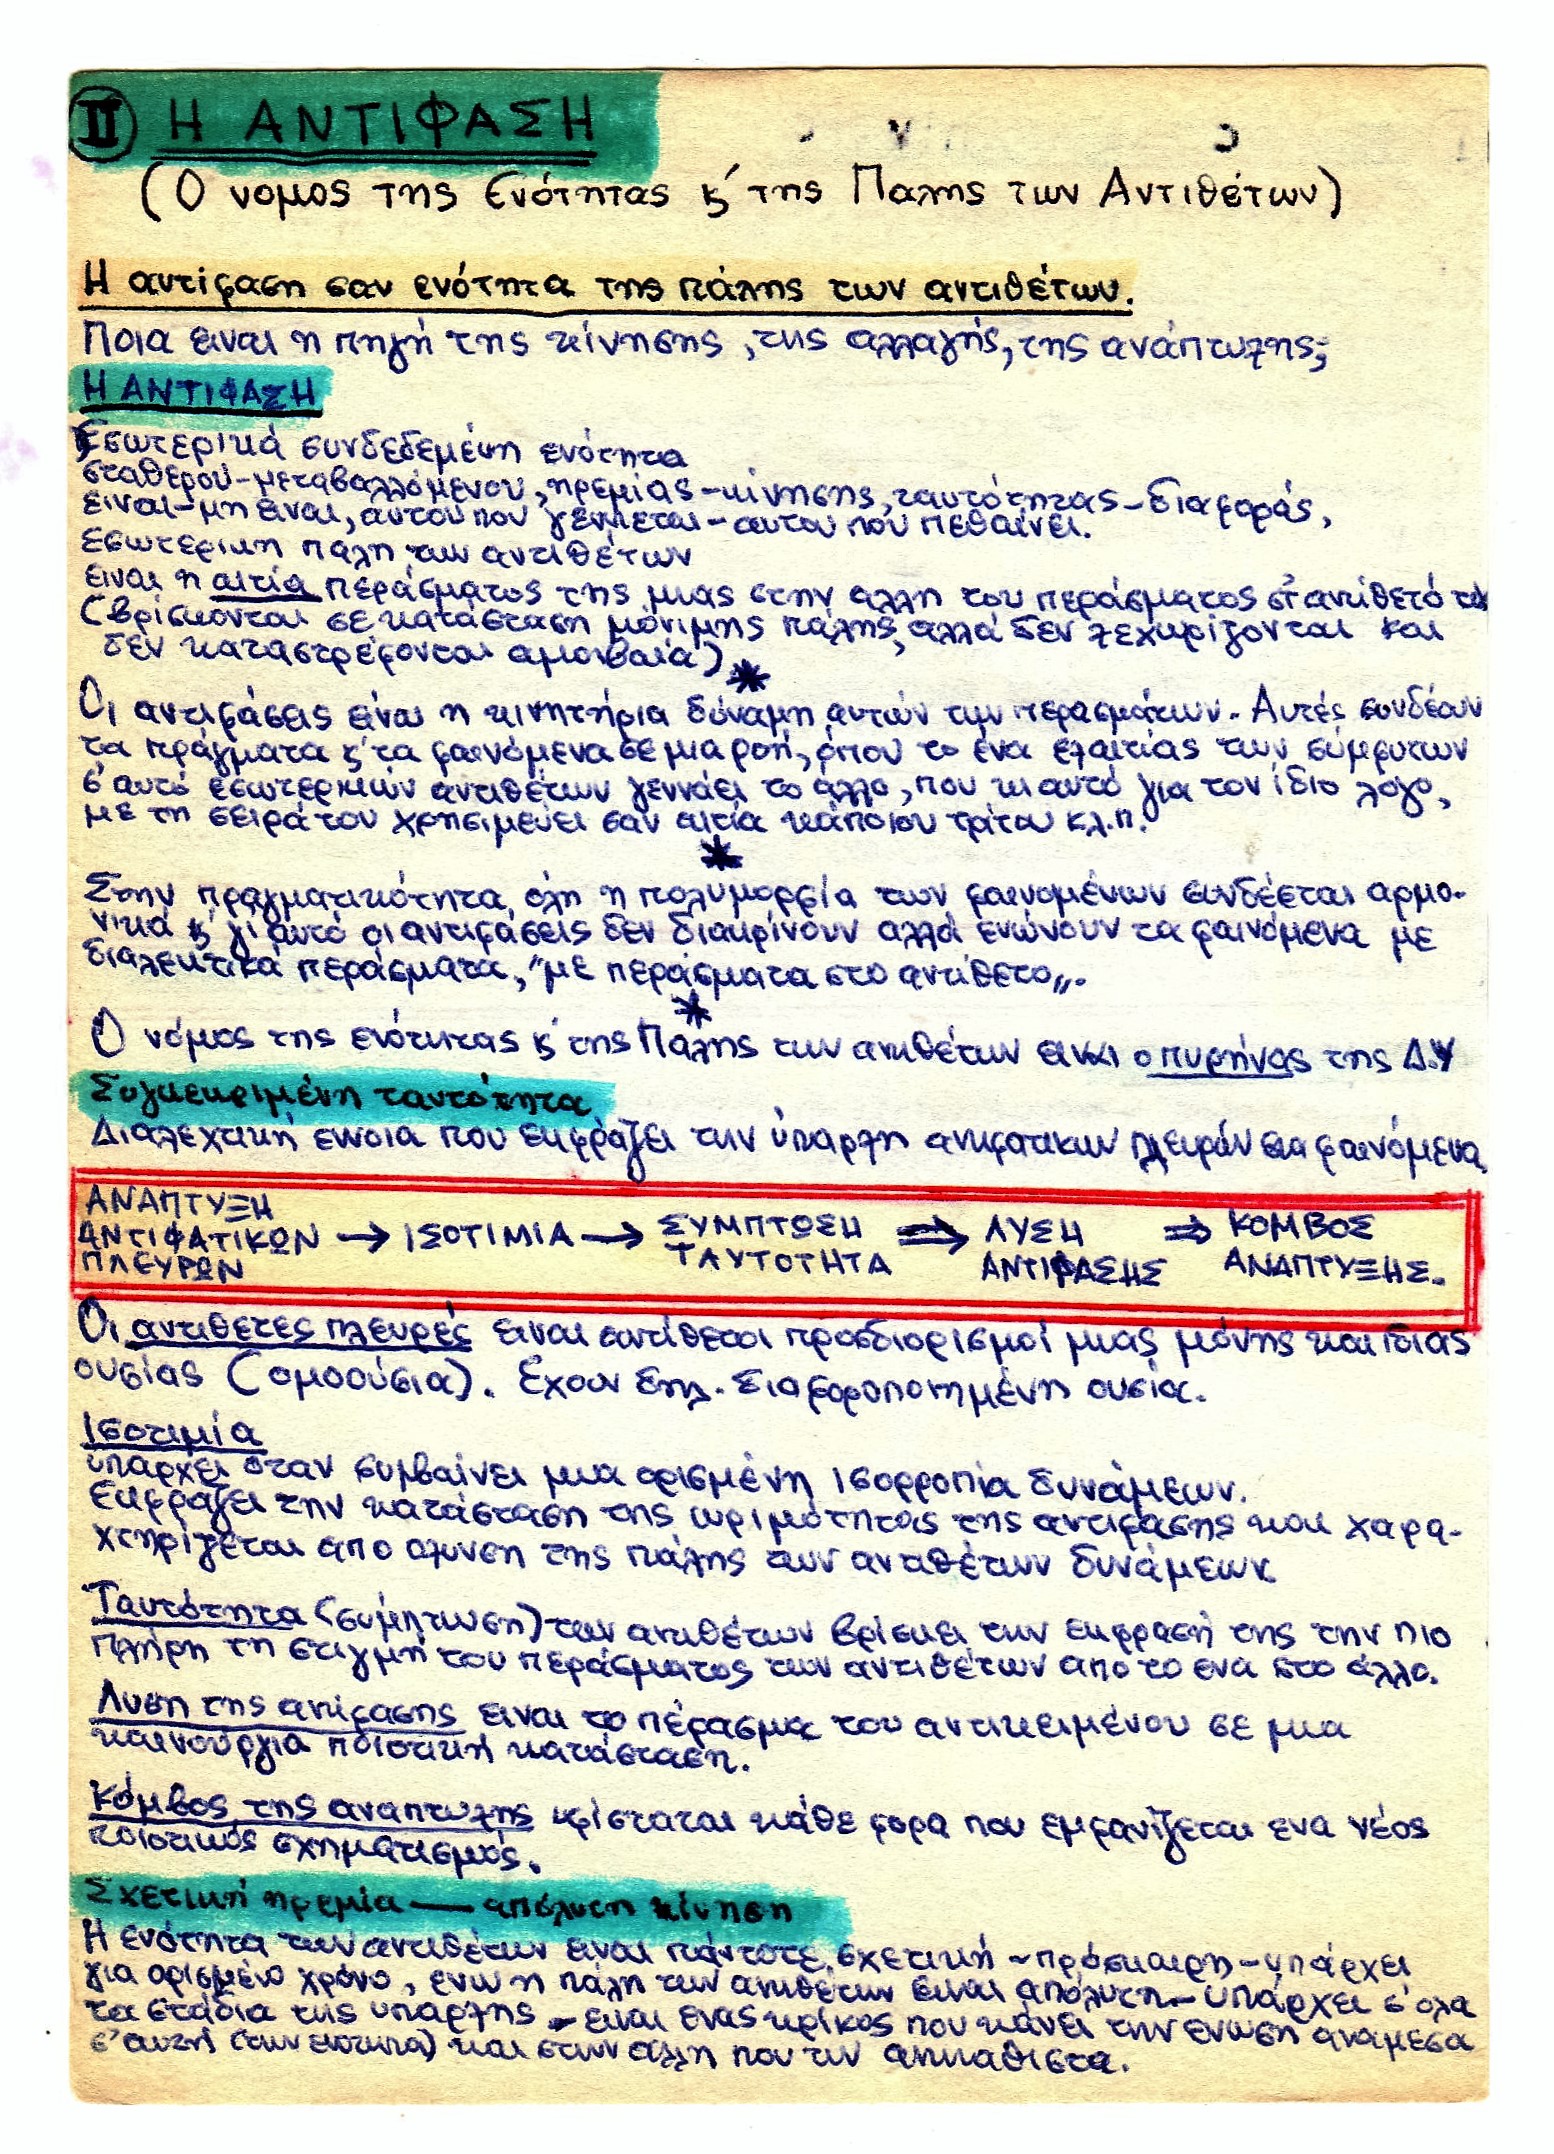 II Η ΑΝΤΙΦΑΣΗ
(Ο νομος της Ενότητας κ' της Παλης των Αντιθέτων)
Η αντίφαση σαν ενότητα της πάλης των αντιθέτων.
Ποια ειναι η πηγή της κίνησης, της αλλαγής, της ανάπτυξης;
Η ΑΝΤΙΦΑΣΗ
Εσωτερικά συνδεδεμένη ενότητα
σταθερού-μεταβαλλόμενου, ηρεμίας-κίνησης, ταυτότητας-διαφοράς,
ειναι-μη ειναι, αυτού που γεννιεται-αυτου που πεθαίνει.
Εσωτερικη παλη των αντιθέτων
ειναι η αιτία περάσματος της μιας στην αλλη του περάσματος στ' αντίθετό της
(βρίσκονται σε κατάσταση μόνιμης πάλης, αλλά δεν ξεχωρίζονται και
δεν καταστρέφονται αμοιβαία)
*
Οι αντιφάσεις είναι η κινητήρια δύναμη αυτών των περασμάτων. Αυτές συνδέουν
τα πράγματα κ' τα φαινόμενα σε μια ροή, όπου το ένα εξαιτίας των σύμφυτων
σ' αυτό εσωτερικών αντιθέτων γεννάει το άλλο, που κι αυτό για τον ίδιο λογο,
με τη σειρά του χρησιμεύει σαν αιτία κάποιου τρίτου κλ.π.
*
Στην πραγματικότητα, όλη η πολυμορφία των φαινομένων συνδέεται αρμο-
νικά κ' γι' αυτό οι αντιφάσεις δεν διακρίνουν αλλά ενώνουν τα φαινόμενα με
διαλεκτικα περάσματα, "με περάσματα στο αντίθετο".
*
Ο νόμος της ενότητας κ' της Παλης των αντιθέτων ειναι ο πυρήνας της Δ.Υ
Συγκεκριμένη ταυτότητα
Διαλεχτική έννοια που εκφράζει την ύπαρξη αντιφατικων πλευρών στα φαινόμενα
ΑΝΑΠΤΥΞΗ
ΑΝΤΙΦΑΤΙΚΩΝ → ΙΣΟΤΙΜΙΑ → ΣΥΜΠΤΩΣΗ ⇒ ΛΥΣΗ ⇒ ΚΟΜΒΟΣ
ΠΛΕΥΡΩΝ ΤΑΥΤΟΤΗΤΑ ΑΝΤΙΦΑΣΗΣ ΑΝΑΠΤΥΞΗΣ.
Οι αντιθετες πλευρές ειναι αντίθετοι προσδιορισμοί μιας μόνης και ίδιας
ουσίας (ομοούσια). Έχουν δηλ. διαφοροποιημένη ουσία.
Ισοτιμία
υπαρχει όταν συμβαίνει μια ορισμένη ισορροπία δυνάμεων.
Εκφράζει την κατάσταση της ωριμότητας της αντιφασης και χαρα-
χτηρίζεται απο οξυνση της πάλης των αντιθέτων δυνάμεων
Ταυτότητα (σύμπτωση) των αντιθέτων βρίσκει την εκφρασή της την πιο
πλήρη τη στιγμή του περάσματος των αντιθέτων απο το ενα στο άλλο.
Λυση της αντίφασης ειναι το πέρασμα του αντικειμένου σε μια
καινούργια ποιοτική κατάσταση.
Κόμβος της αναπτυξης υφίσταται κάθε φορα που εμφανίζεται ενα νέος
ποιοτικός σχηματισμός.
Σχετική ηρεμία — απόλυτη κίνηση
Η ενότητα των αντιθέτων ειναι πάντοτε σχετική - πρόσκαιρη - υπάρχει
για ορισμένο χρόνο, ενω η πάλη των αντιθέτων ειναι απόλυτη - υπάρχει σ' ολα
τα στάδια της υπαρξης - ειναι ενας κρίκος που κάνει την ενωση αναμεσα
σ' αυτή (την ενότητα) και στην αλλη που την αντικαθιστα.